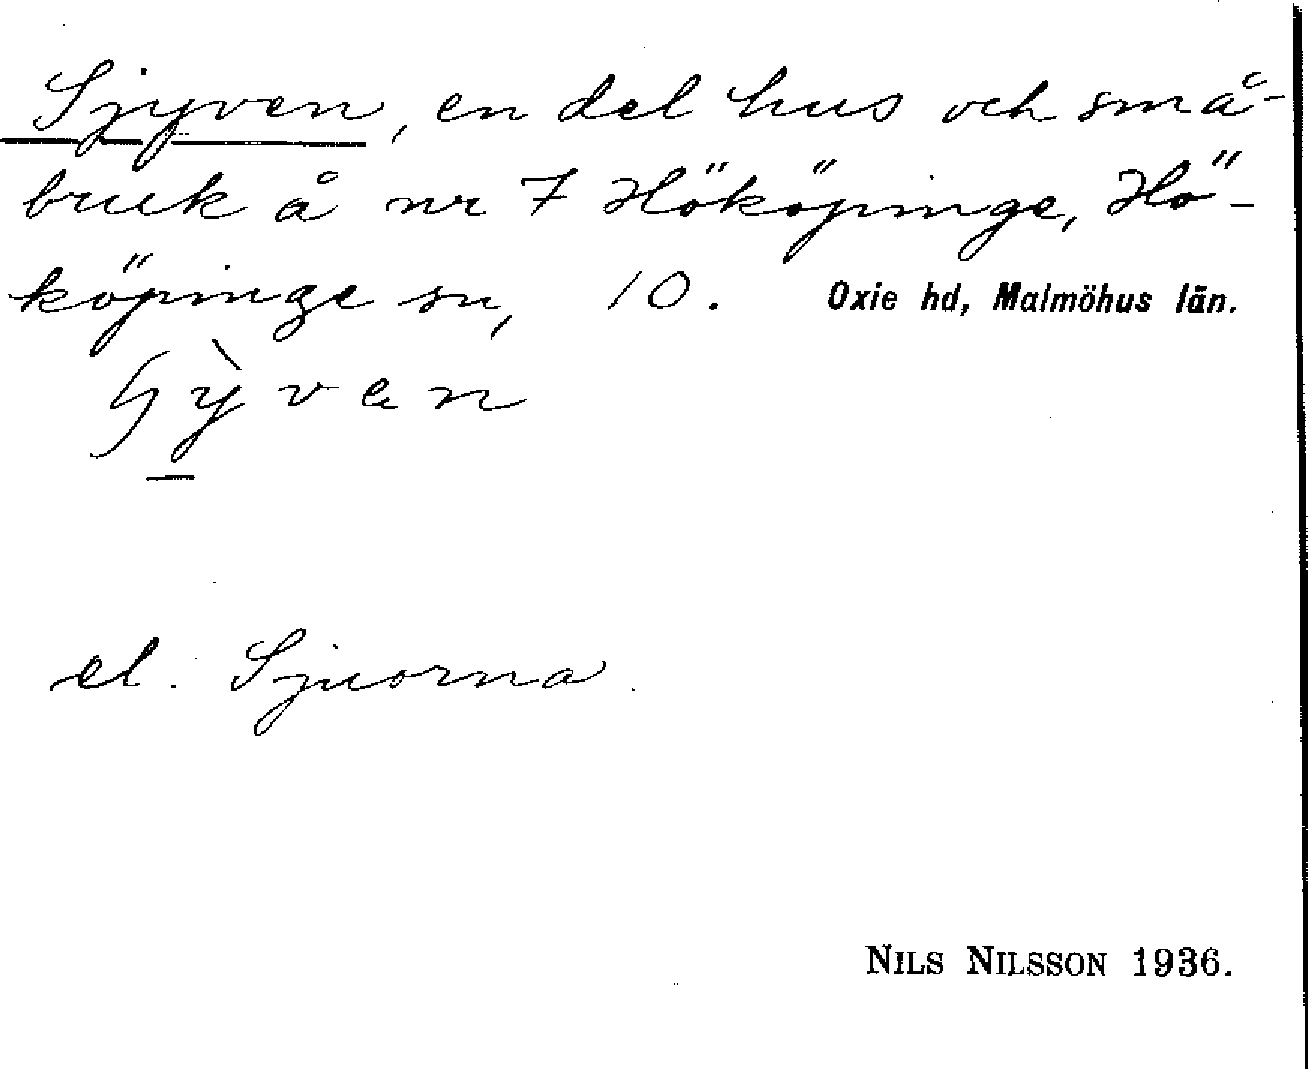 Sjyven, en del hus och små-
bruk å nr 7 Hököpinge, Hö-
köpinge sn, 10. Oxie hd, Malmöhus län.
ɧỳven
el. Sjuorna.
NILS NILSSON 1936.